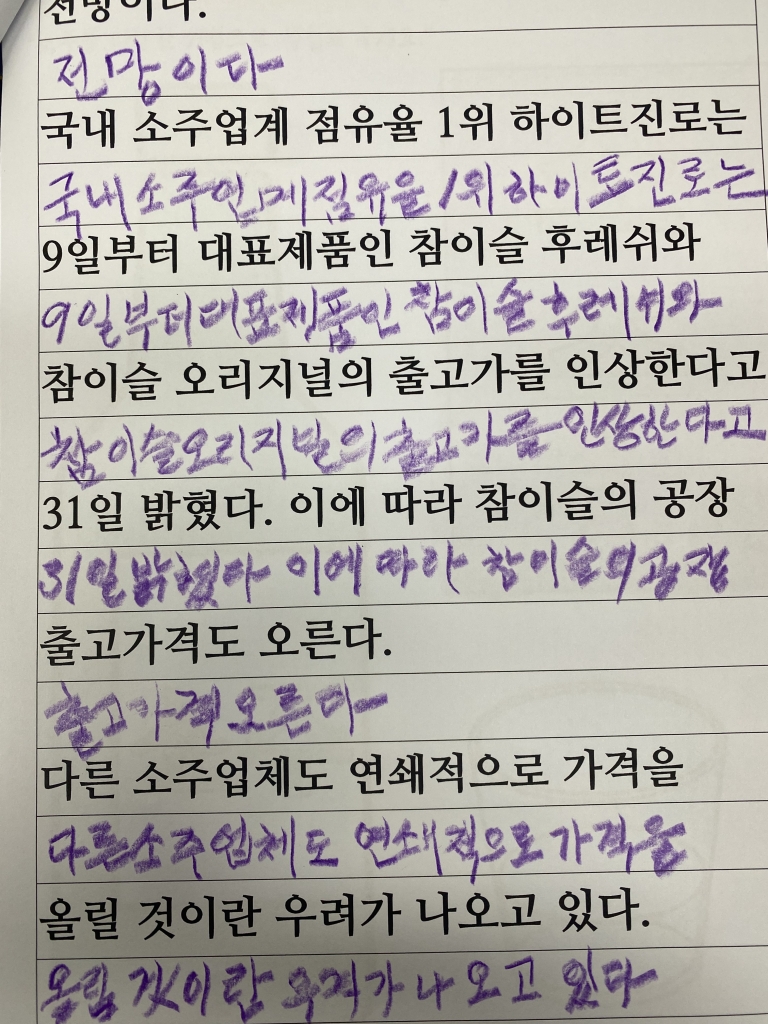 전망이다.
전망이다
국내 소주업계 점유율 1위 하이트진로는
국내소주업계점유율 1위하이트진로는
9일부터 대표제품인 참이슬 후레쉬와
9일부터대표제품인 참이슬후레쉬와
참이슬 오리지널의 출고가를 인상한다고
참이슬오리지널의출고가를 인상한다고
31일 밝혔다. 이에 따라 참이슬의 공장
31일밝혔다 이에 따라 참이슬의공장
출고가격도 오른다.
출고가격오른다
다른 소주업체도 연쇄적으로 가격을
다른소주업체도 연쇄적으로 가격을
올릴 것이란 우려가 나오고 있다.
올릴 것이란 우려가 나오고 있다